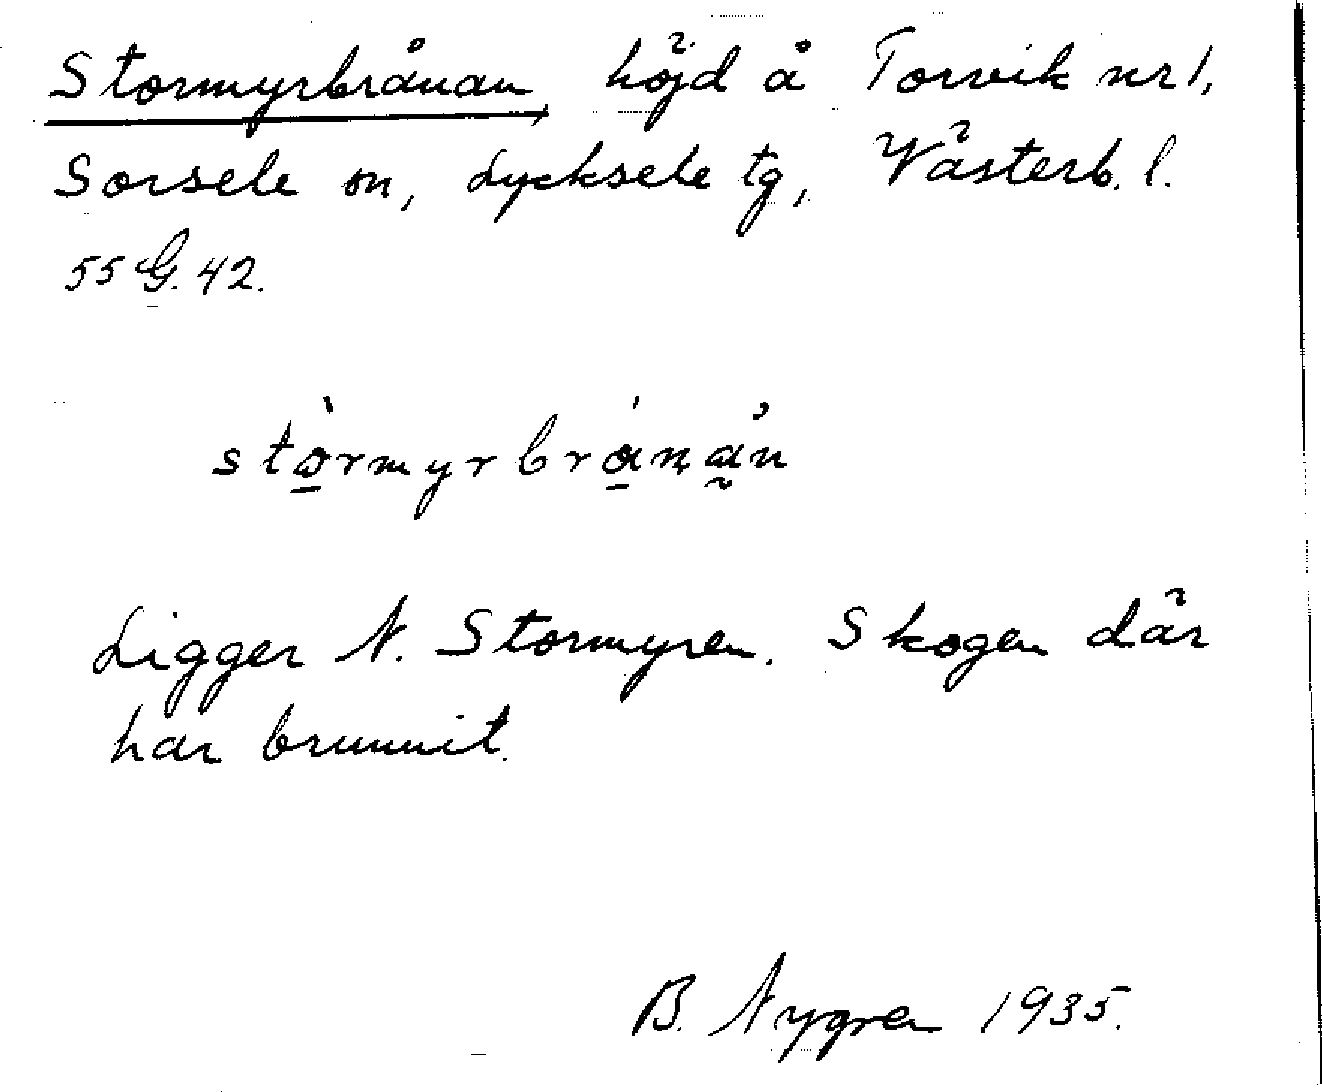 Stormyrbrånan, höjd å Torvik nr 1,
Sorsele sn, Lycksele tg, Västerb. l.
55 G. 42.
stò̱rmyrbrá̱na̰n
Ligger N. Stormyren. Skogen där
har brunnit.
B. Nygren 1935.